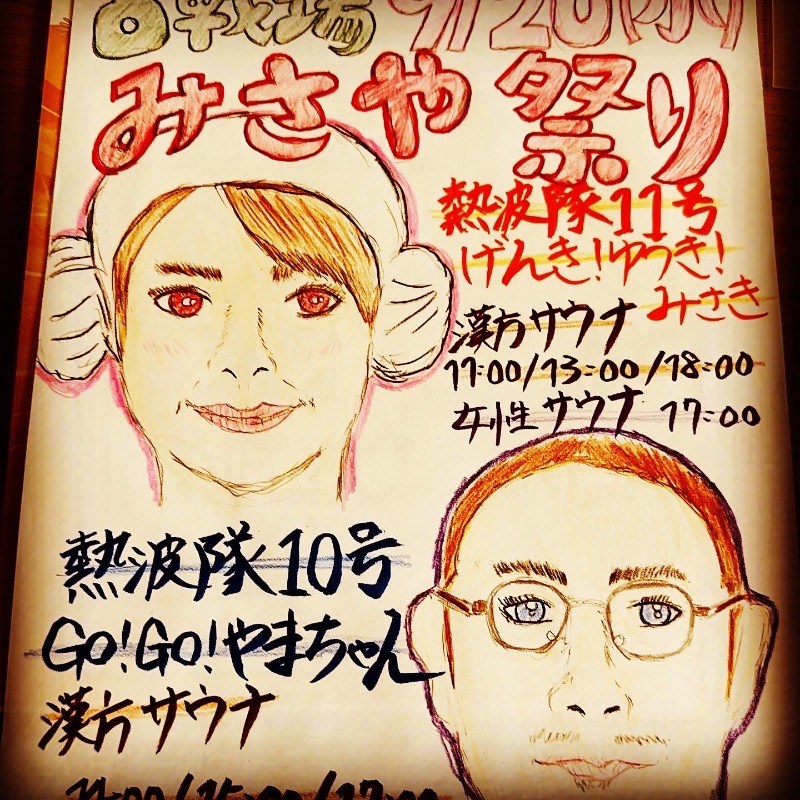 戦場 9/20
みさや祭り
熱波隊11号
げんき!ゆうき!
みさき
漢方サウナ
11:00/13:00/18:00
女性サウナ 17:00
熱波隊10号
Go!Go!やまちゃん
漢方サウナ